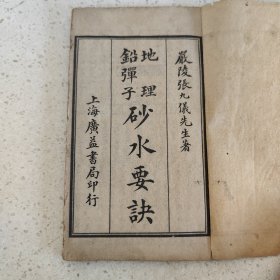 嚴陵張九儀先生著
地理
鉛彈子
砂水要訣
上海廣益書局印行